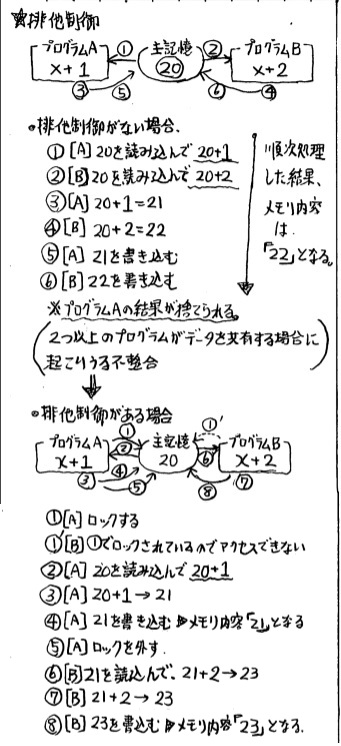 ☆排他制御
プログラムA ① 主記憶 ② プログラムB
x+1 20 x+2
③ ⑤ ⑥ ④
•排他制御がない場合、
①[A]20を読み込んで20+1
②[B]20を読み込んで20+2
③[A]20+1=21
④[B]20+2=22
⑤[A]21を書き込む
⑥[B]22を書き込む
順次処理
した結果、
メモリ内容
は
「22」となる。
※プログラムAの結果が捨てられる。
(2つ以上のプログラムがデータを共有する場合に
起こりうる不整合)
•排他制御がある場合
プログラムA ① 主記憶 ①' プログラムB
x+1 ② 20 ⑥ x+2
③ ④ ⑤ ⑧ ⑦
①[A]ロックする
①'[B]①でロックされているのでアクセスできない
②[A]20を読み込んで20+1
③[A]20+1→21
④[A]21を書き込む▷メモリ内容「21」となる
⑤[A]ロックを外す.
⑥[B]21を読込んで、21+2→23
⑦[B]21+2→23
⑧[B]23を書込む▷メモリ内容「23」となる.